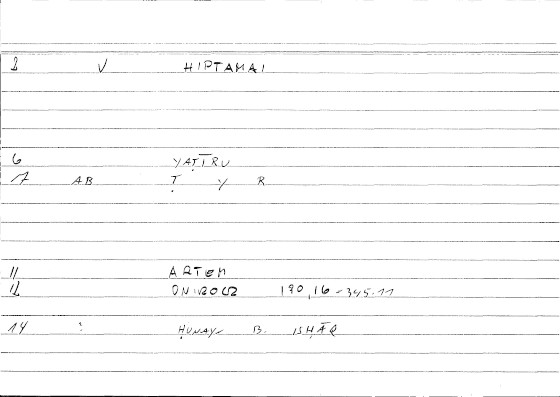 8 V HIPTAMAI
6 YAṬĪRU
17 AB Ṭ Y R
11 ARTEM
12 ONIROCR 190,16-345.11
14 : ḤUNAY- B. ISḤĀQ